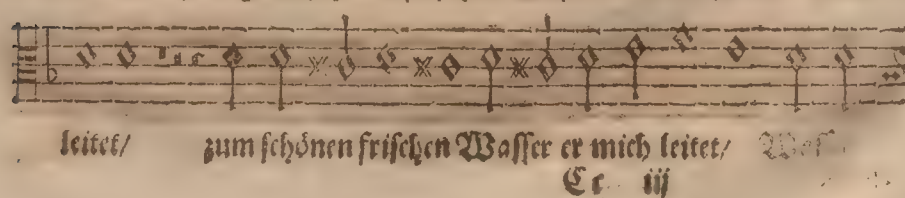 leitet/ zum schönen frischen Wasser er mich leitet/
Cc iij